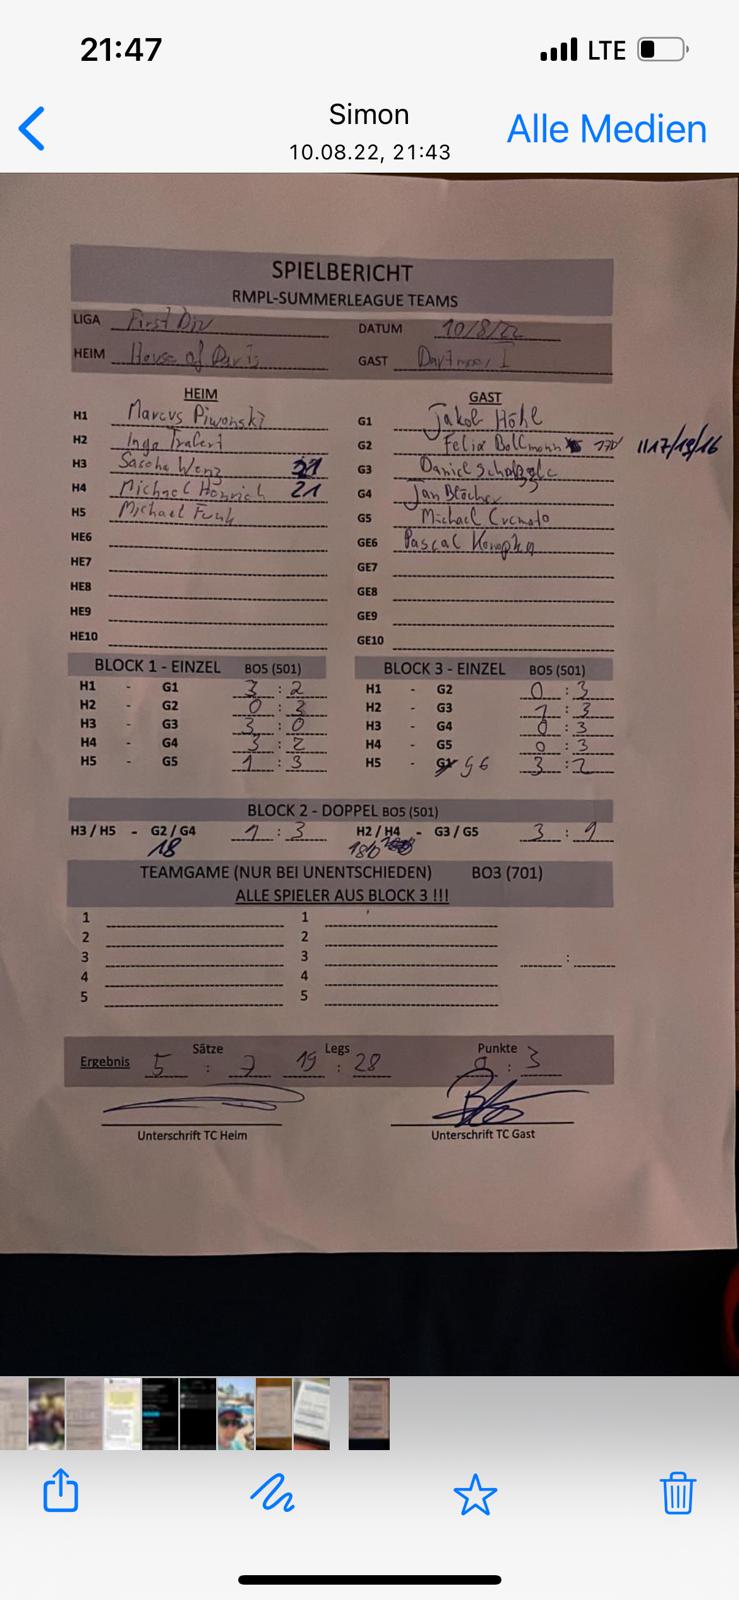 21:47 LTE
Simon
10.08.22, 21:43
Alle Medien
SPIELBERICHT
RMPL-SUMMERLEAGUE TEAMS
LIGA First Div DATUM 10/8/22
HEIM House of Darts GAST Dartmoor I
HEIM GAST
H1 Marcus Piwonski G1 Jakob Höhl
H2 Ingo G2 Felix Bollmann 170 117/19/16
H3 Sascha Wenz 21 G3 Daniel
H4 Michael Honrich 21 G4 Jan Blöcher
H5 Michael Funk G5 Michael
HE6 GE6 Pascal Konopka
HE7 GE7
HE8 GE8
HE9 GE9
HE10 GE10
BLOCK 1 - EINZEL BO5 (501) BLOCK 3 - EINZEL BO5 (501)
H1 - G1 3 : 2 H1 - G2 0 : 3
H2 - G2 0 : 3 H2 - G3 1 : 3
H3 - G3 3 : 0 H3 - G4 0 : 3
H4 - G4 3 : 2 H4 - G5 0 : 3
H5 - G5 1 : 3 H5 - G6 3 : 2
BLOCK 2 - DOPPEL BO5 (501)
H3 / H5 - G2 / G4 1 : 3 H2 / H4 - G3 / G5 3 : 1
18 180
TEAMGAME (NUR BEI UNENTSCHIEDEN) BO3 (701)
ALLE SPIELER AUS BLOCK 3 !!!
1 1
2 2
3 3 :
4 4
5 5
Sätze Legs Punkte
Ergebnis 5 : 7 19 : 28 0 : 3
Unterschrift TC Heim Unterschrift TC Gast